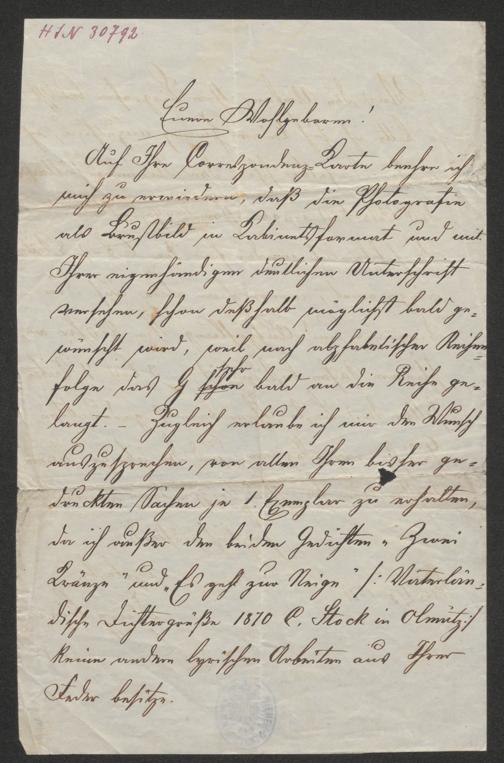 HIN 30792
Euere Wohlgeboren!
Auf Ihre Correspondenz-Karte beehre ich
mich zu erwiedern, daß die Photografie
als Brustbild in Kabinetsformat und mit
Ihrer eigenhändigen deutlichen Unterschrift
versehen, schon deßhalb möglichst bald ge-
wünscht wird, weil nach alphabetischer Reihen
folge das G sehr bald an die Reihe ge-
langt. – Zugleich erlaube ich mir den Wunsch
auszusprechen, von allen Ihren bisher ge-
druckten Sachen je 1 Exemplar zu erhalten,
da ich außer den beiden Gedichten „Zwei
Kränze" und „Es geht zur Neige" /: Vaterlän-
dische Dichtergrüße 1870 C. Stock in Olmütz :/
keine andern lyrischen Arbeiten aus Ihrer
Feder besitze.